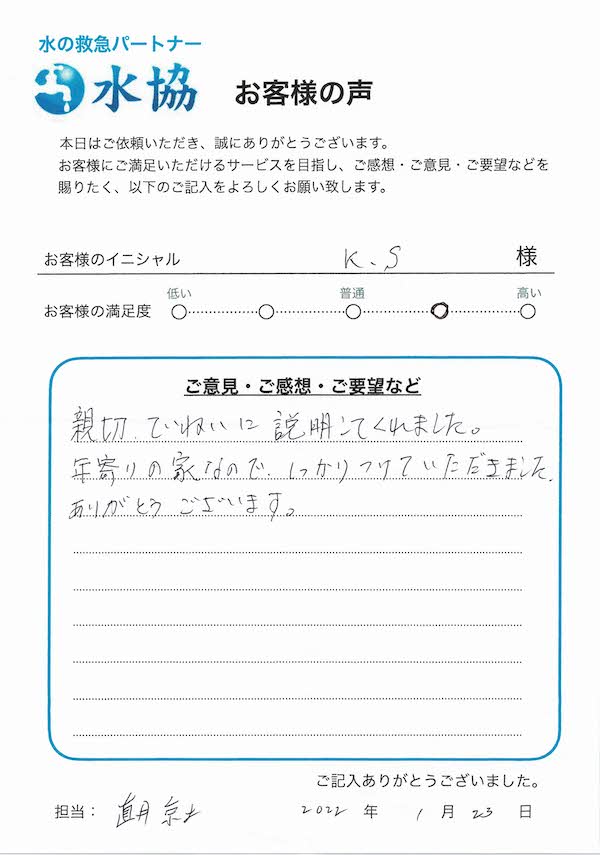 水の救急パートナー
水協
お客様の声
本日はご依頼いただき、誠にありがとうございます。
お客様にご満足いただけるサービスを目指し、ご感想・ご意見・ご要望などを
賜りたく、以下のご記入をよろしくお願い致します。
お客様のイニシャル K.S 様
低い 普通 高い
お客様の満足度
ご意見・ご感想・ご要望など
親切、ていねいに説明してくれました。
年寄りの家なので、しっかりつけていただきました、
ありがとうございます。
ご記入ありがとうございました。
担当: 2022 年 1 月 23 日